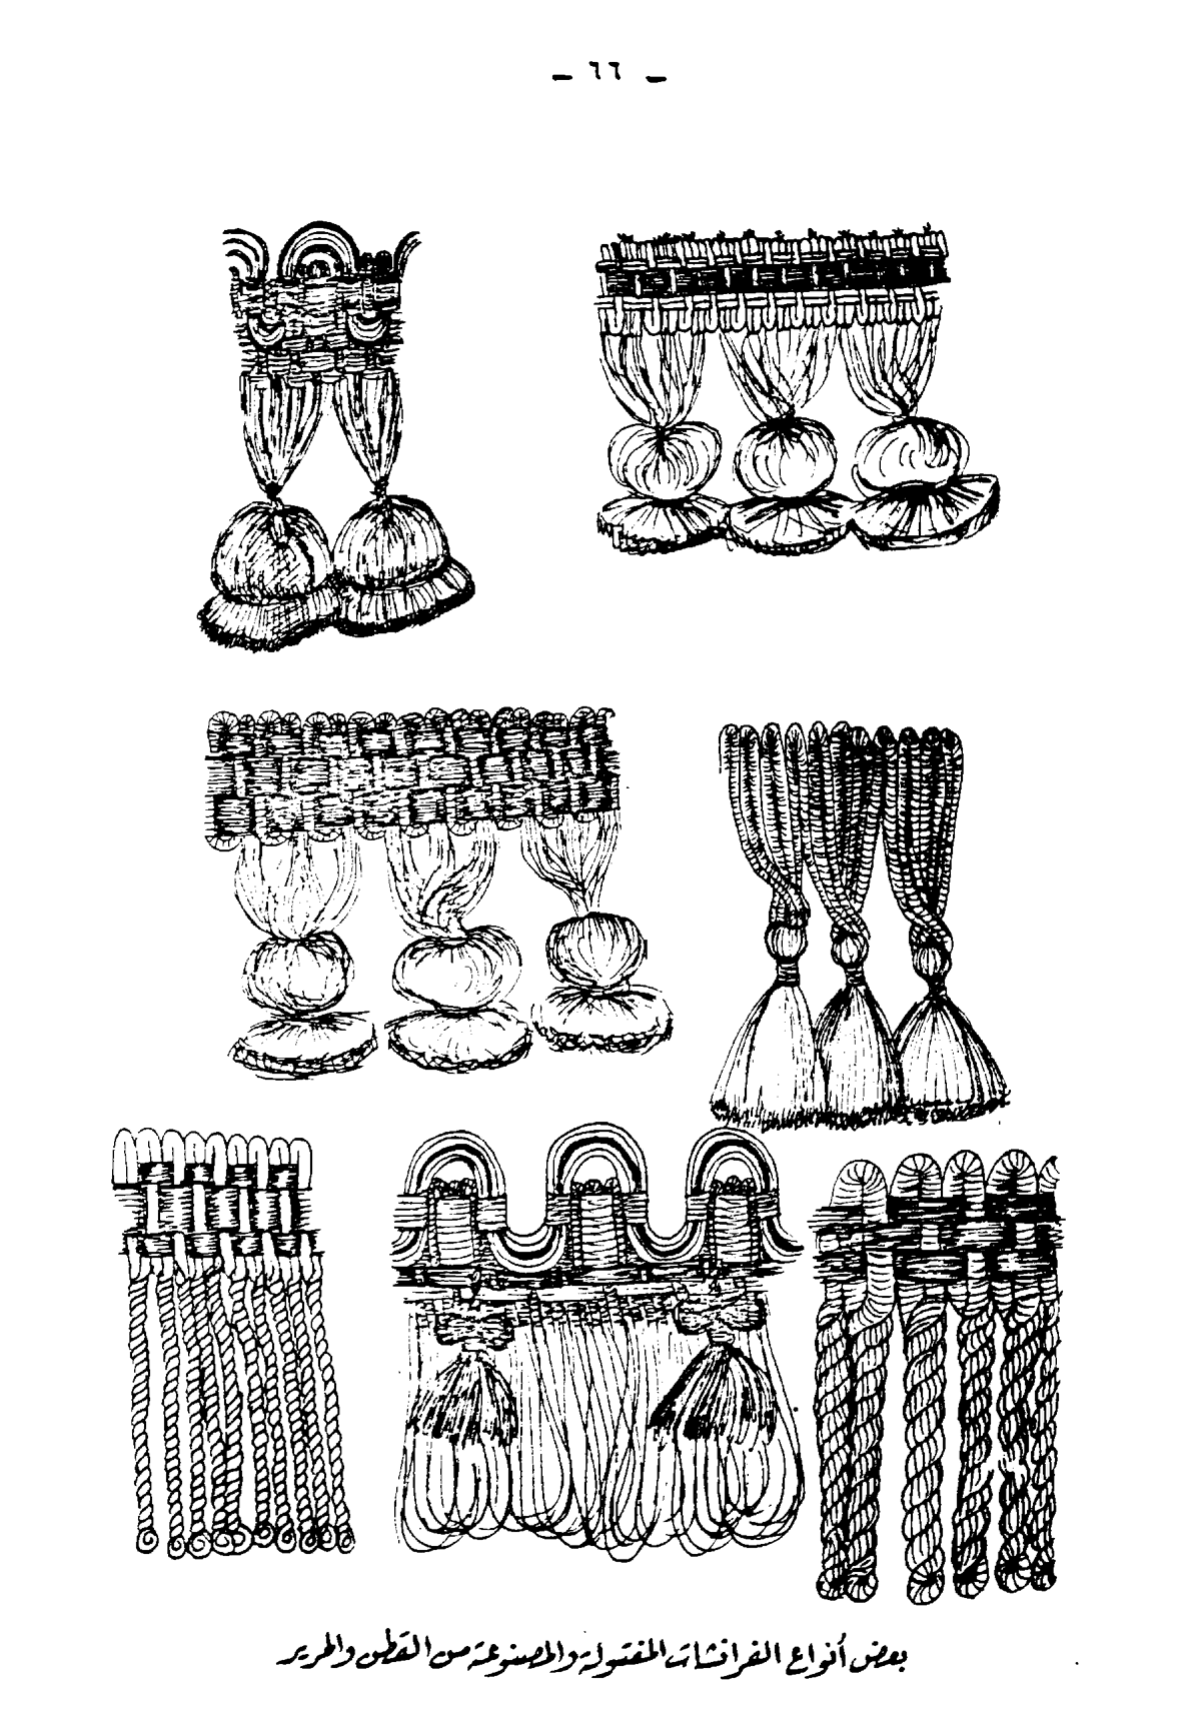 - ٦٦ -
بعض أنواع الفرانشات المفتولة والمصنوعة من القطن والحرير